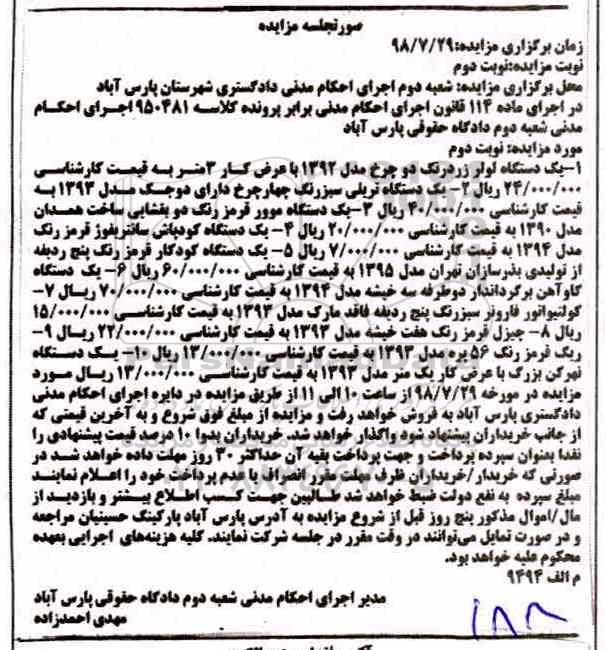 صورتجلسه مزایده
زمان برگزاری مزایده:۹۸/۷/۲۹
نوبت مزایده:نوبت دوم
محل برگزاری مزایده: شعبه دوم اجرای احکام مدنی دادگستری شهرستان پارس آباد
در اجرای ماده ۱۱۴ قانون اجرای احکام مدنی برابر پرونده کلاسه ۹۵۰۴۸۱ اجرای احکام
مدنی شعبه دوم دادگاه حقوقی پارس آباد
مورد مزایده: نوبت دوم
۱-یک دستگاه لولر زردرنگ دو چرخ مدل ۱۳۹۲ با عرض کار ۳متر به قیمت کارشناسی
۲۴/۰۰۰/۰۰۰ ریال ۲- یک دستگاه تریلی سبزرنگ چهارچرخ دارای دوجک مدل ۱۳۹۳ به
قیمت کارشناسی ۴۰/۰۰۰/۰۰۰ ریال ۳-یک دستگاه موور قرمز رنگ دو بشقابی ساخت همدان
مدل ۱۳۹۰ به قیمت کارشناسی ۲۰/۰۰۰/۰۰۰ ریال ۴- یک دستگاه کودپاش سانتریفوژ قرمز رنگ
مدل ۱۳۹۴ به قیمت کارشناسی ۷/۰۰۰/۰۰۰ ریال ۵- یک دستگاه کودکار قرمز رنگ پنج ردیفه
از تولیدی بذرسازان تهران مدل ۱۳۹۵ به قیمت کارشناسی ۶۰/۰۰۰/۰۰۰ ریال ۶- یک دستگاه
گاوآهن برگرداندار دوطرفه سه خیشه مدل ۱۳۹۴ به قیمت کارشناسی ۷۰/۰۰۰/۰۰۰ ریال ۷-
کولتیواتور فاروئر سبزرنگ پنج ردیفه فاقد مارک مدل ۱۳۹۳ به قیمت کارشناسی ۱۵/۰۰۰/۰۰۰
ریال ۸- چیزل قرمز رنگ هفت خیشه مدل ۱۳۹۳ به قیمت کارشناسی ۲۲/۰۰۰/۰۰۰ ریال ۹-
ریگ قرمز رنگ ۵۶ پره مدل ۱۳۹۳ به قیمت کارشناسی ۱۳/۰۰۰/۰۰۰ ریال ۱۰- یک دستگاه
نهرکن بزرگ با عرض کار یک متر مدل ۱۳۹۳ به قیمت کارشناسی ۱۳/۰۰۰/۰۰۰ ریال مورد
مزایده در مورخه ۹۸/۷/۲۹ از ساعت ۱۰ الی ۱۱ از طریق مزایده در دایره اجرای احکام مدنی
دادگستری پارس آباد به فروش خواهد رفت و مزایده از مبلغ فوق شروع و به آخرین قیمتی که
از جانب خریداران پیشنهاد شود واگذار خواهد شد. خریداران بدوا ۱۰ درصد قیمت پیشنهادی را
نقدا بعنوان سپرده پرداخت و جهت پرداخت بقیه آن حداکثر ۳۰ روز مهلت داده خواهد شد در
صورتی که خریدار/خریداران ظرف مهلت مقرر انصراف یا عدم پرداخت خود را اعلام نمایند
مبلغ سپرده به نفع دولت ضبط خواهد شد طالبین جهت کسب اطلاع بیشتر و بازدید از
مال/اموال مذکور پنج روز قبل از شروع مزایده به آدرس پارس آباد پارکینگ حسینیان مراجعه
و در صورت تمایل می‌توانند در وقت مقرر در جلسه شرکت نمایند. کلیه هزینه‌های اجرایی بعهده
محکوم علیه خواهد بود.
م الف ۹۴۹۴
مدیر اجرای احکام مدنی شعبه دوم دادگاه حقوقی پارس آباد
مهدی احمدزاده